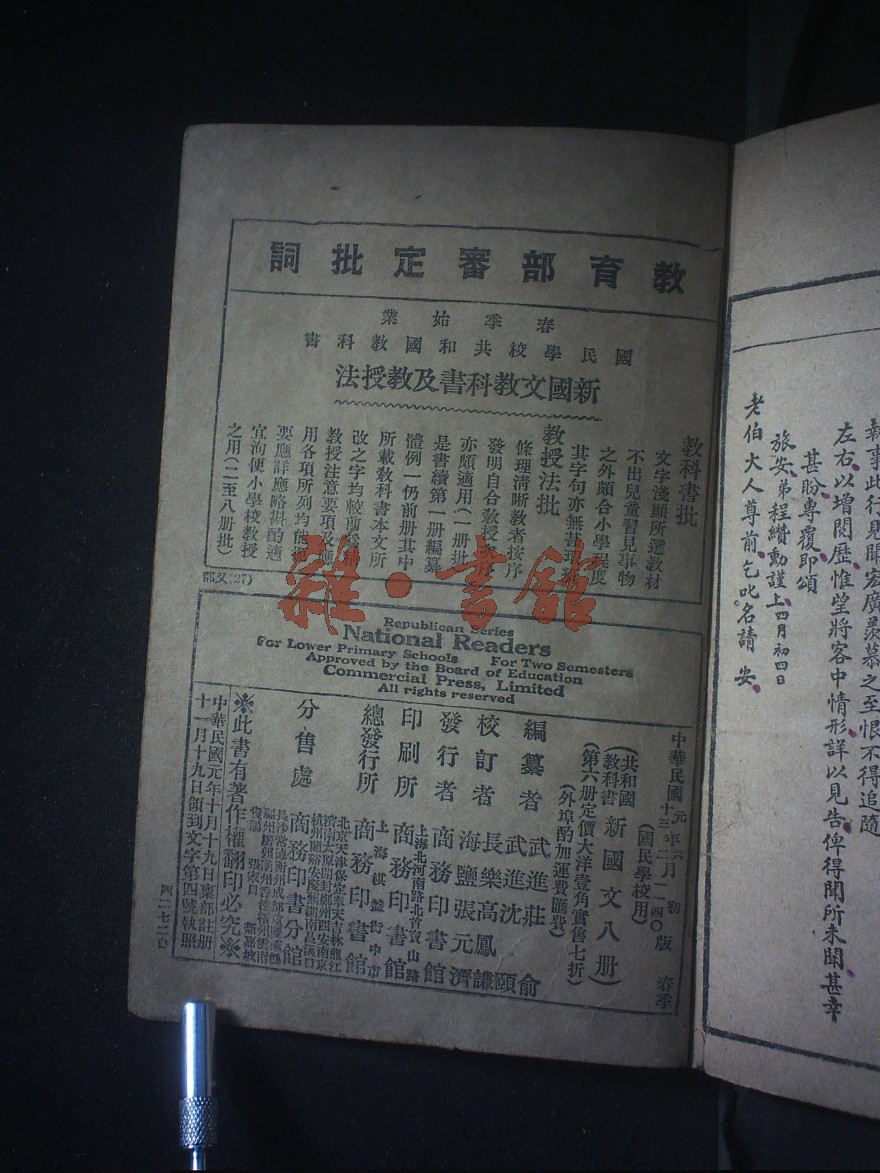 教育部審定批詞
春季始業
國民學校共和國教科書
新國文教科書及教授法
教科書批
文字淺顯所選教材
不出兒童習見事物
之外頗合小學程度
其字句亦無
教授法批
條理清晰教者按序
發明自合教授
亦頗適用(一册批
是書續第一册編纂
體例一仍前册其中
所載教科書本文所
改之字均較前
教授注意要項及應
用各項所列均能
要應詳應略斟酌適
宜洵便小學校教授
之用(二至八册批)
(27)又部
雜·書館
Republican Series
National Readers
For Lower Primary Schools For Two Semesters
Approved by the Board of Education
Commercial Press, Limited
All rights reserved
中華民國元年六月初版
十三年二月一四〇版
春季
(國民學校用)
(共和國教科書新國文八册)
(第六册定價大洋壹角實售七折)
(外埠酌加運費匯費)
編纂者 武進莊俞
武進沈頤
校訂者 長樂高鳳謙
海鹽張元濟
發行者 商務印書館
印刷所 上海北河南路北首寶山路
商務印書館
總發行所 上海棋盤街中市
商務印書館
分售處 北京天津保定奉天吉林龍江
濟南太原開封鄭州西安南京
杭州蘭谿安慶蕪湖南昌漢口
商務印書分館
※此書有著作權翻印必究※
中華民國元年十月十九日稟部註册
十一月十九日領到文字第四號執照
執事此行見聞宏廣羨慕之至恨不得追隨
左右以增閱歷惟望將客中情形詳以見告俾得聞所未聞甚幸
甚盼專覆即頌
旅安弟程纘勳謹上四月初四日
老伯大人尊前乞叱名請安